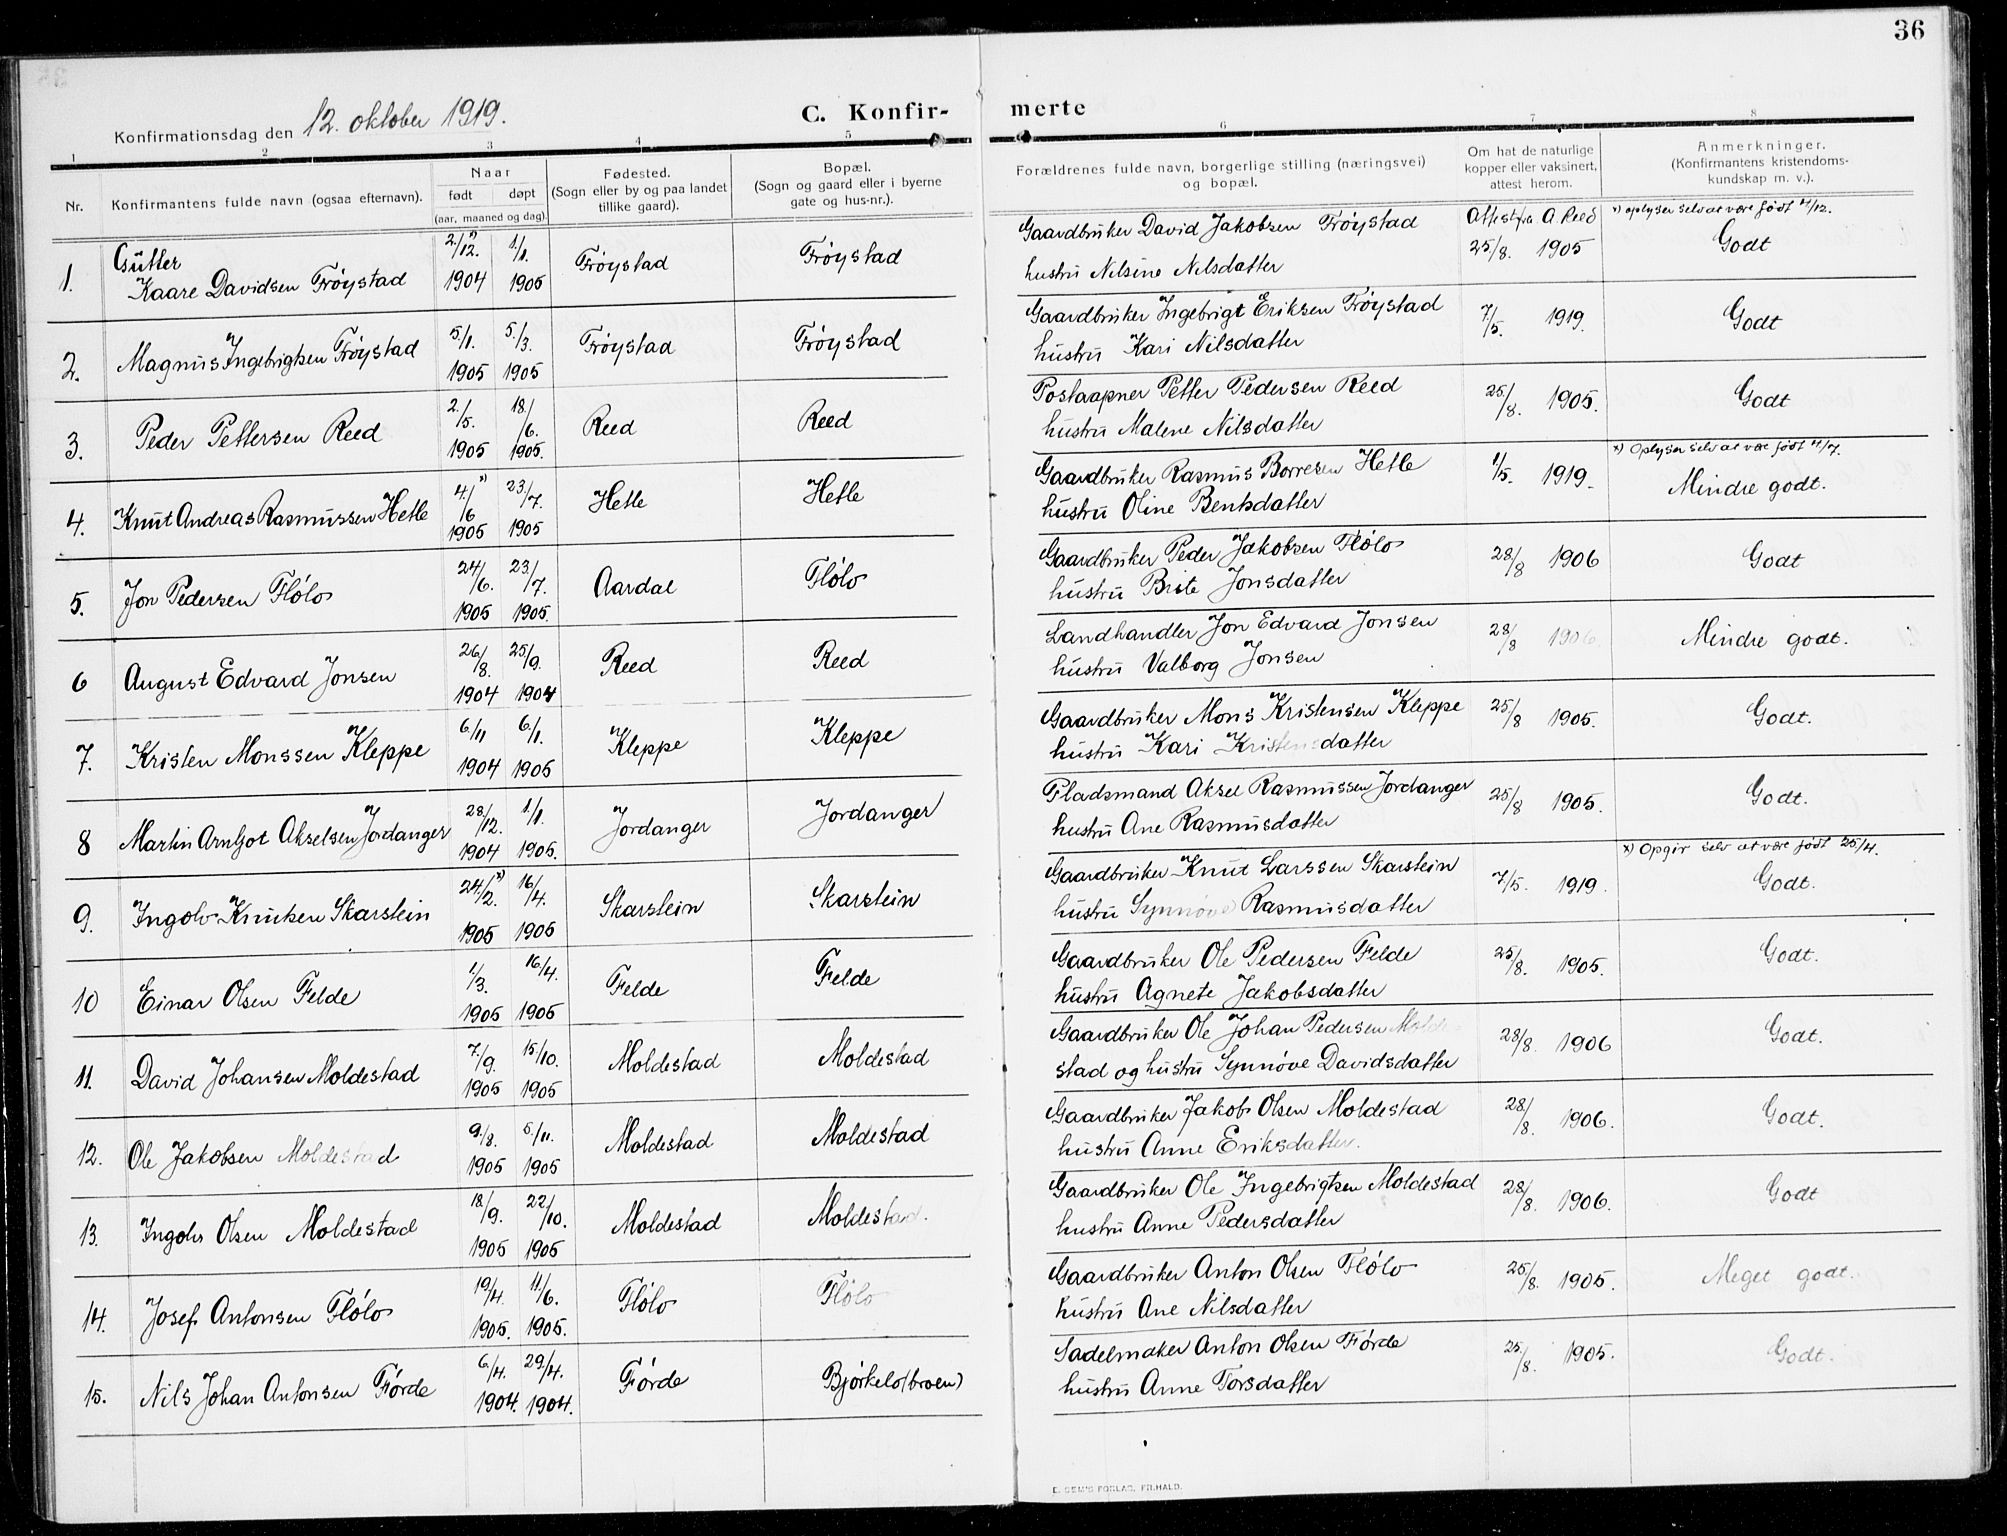 36
Konfirmationsdag den 12. oktober 1919.
C. Konfir-
merte
1 2 3 4 5 6 7 8
Nr.
Konfirmantens fulde navn (ogsaa efternavn).
Naar
født døpt
(aar, maaned og dag).
Fødested.
(Sogn eller by og paa landet
tillike gaard).
Bopæl.
(Sogn og gaard eller i byerne
gate og hus-nr.).
Forældrenes fulde navn, borgerlige stilling (næringsvei)
og bopæl.
Om hat de naturlige
kopper eller vaksinert,
attest herom.
Anmerkninger.
(Konfirmantens kristendoms-
kundskap m. v.).
Gutter 2./12. x) 1/1. Frøystad Frøystad Gaardbruker David Jakobsen Frøystad Attest fra A. Reed x) oplyser selv at være født 4/12.
1. Kaare Davidsen Frøystad 1904 1905 hustru Nilsine Nilsdatter 25/8. 1905 Godt
2. Magnus Ingebrigtsen Frøystad 5/1. 5/3. Frøystad Frøystad Gaardbruker Ingebrigt Eriksen Frøystad 7/5. 1919. Godt
1905 1905 hustru Kari Nilsdatter
3. Peder Pettersen Reed 2./5. 18./6. Reed Reed Postaapner Petter Pedersen Reed 25/8. 1905. Godt
1905 1905. hustru Malene Nilsdatter
x) Oplyser selv at være født 4/7.
4. Knut Andreas Rasmussen Hetle 4./6 x) 23/7. Hetle Hetle Gaardbruker Rasmus Borresen Hetle 1/5. 1919. Mindre godt.
1905 1905 hustru Oline Bentsdatter
5. Jon Pedersen Flølo 24/6. 23./7. Aardal Flølo Gaardbruker Peder Jakobsen Flølo 28/8 1906 Godt
1905 1905. hustru Brite Jonsdatter
6 August Edvard Jonsen 26/8. 25/9. Reed Reed Landhandler Jon Edvard Jonsen 28/8 1906 Mindre godt.
1904 1904 hustru Valborg Jonsen
7. Kristen Monssen Kleppe 6/11 6/1. Kleppe Kleppe Gaardbruker Mons Kristensen Kleppe 25/8 1905. Godt.
1904 1905 hustru Kari Kristensdatter
8 Martin Arnljot Akselsen Jordanger 28/12. 1/1. Jordanger Jordanger Pladsmand Aksel Rasmussen Jordanger 25/8 1905. Godt.
1904 1905. hustru Ane Rasmusdatter
x) Opgir selv at være født 25/4.
9. Ingolv Knutsen Skarstein 24./2. x) 16/4. Skarstein Skarstein Gaardbruker Knut Larssen Skarstein 7/5. 1919. Godt.
1905 1905 hustru Synnøve Rasmusdatter
10 Einar Olsen Felde 1/3. 16/4. Felde Felde Gaardbruker Ole Pedersen Felde 25/8. 1905. Godt.
1905 1905 hustru Agnete Jakobsdatter
11. David Johansen Moldestad 7/9. 15/10. Moldestad Moldestad Gaardbruker Ole Johan Pedersen Molde- 28/8. 1906 Godt.
1905 1905 stad og hustru Synnøve Davidsdatter
12. Ole Jakobsen Moldestad 9./8. 5/11. Moldestad Moldestad Gaardbruker Jakob Olsen Moldestad 28/8. 1906. Godt.
1905 1905 hustru Anne Eriksdatter.
13. Ingolv Olsen Moldestad 18/9. 22/10. Moldestad Moldestad. Gaardbruker Ole Ingebrigtsen Moldestad 28/8. 1906. Godt
1905 1905 hustru Anne Pedersdatter
14. Josef Antonsen Flølo 19/4. 11/6. Flølo Flølo Gaardbruker Anton Olsen Flølo 25/8. 1905. Meget godt.
1905. 1905. hustru Ane Nilsdatter
15. Nils Johan Antonsen Førde 6./4. 29/4. Førde Bjørkelo (broen) Sadelmaker Anton Olsen Førde 25/8. 1905. Godt.
1904. 1904. hustru Anne Torsdatter
E. SEM'S FORLAG, FR.HALD.